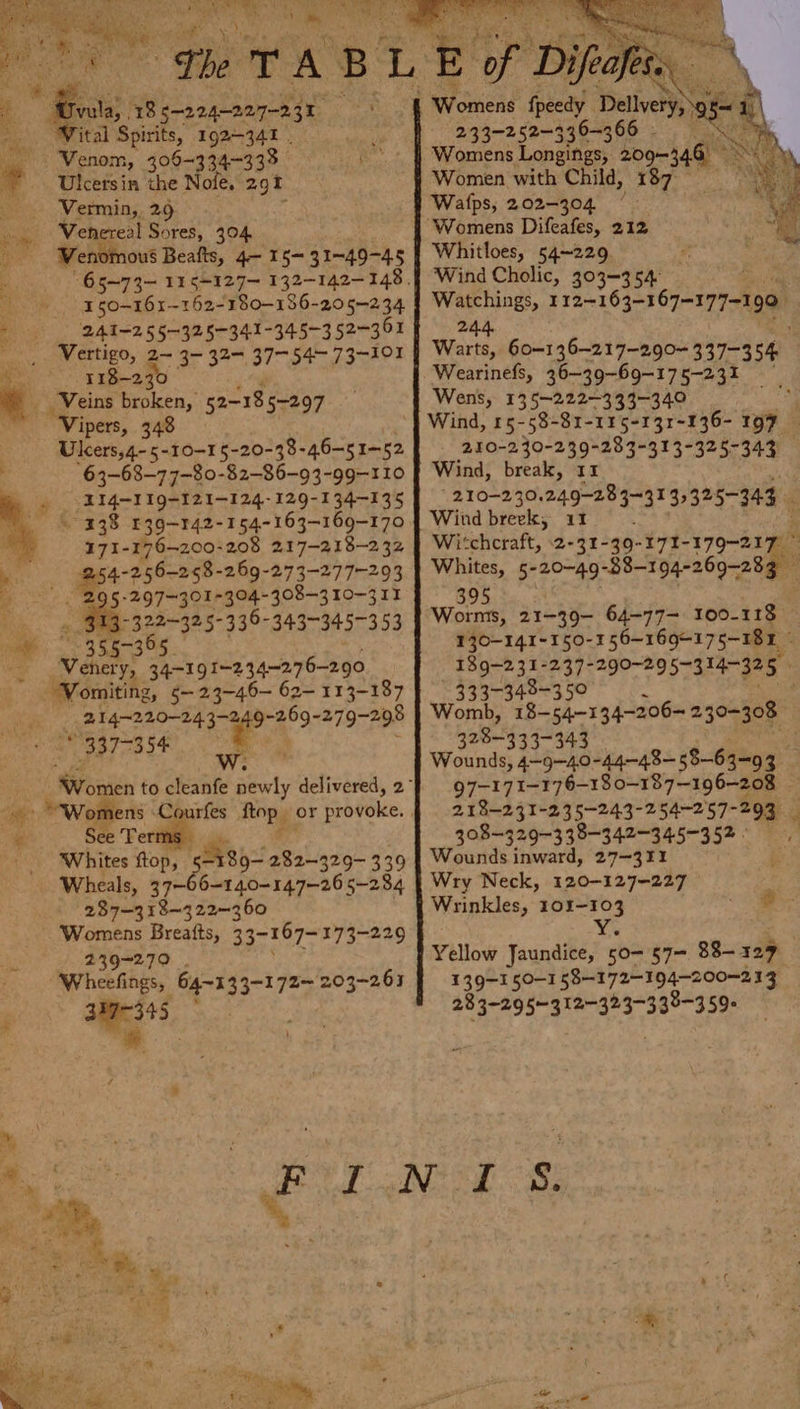 The TABLE of Difeafes.
Uvula, 185-224-227-231
Vital Spirits, 192-341
Venom, 306-334-338
Ulcersin the Nofe, 291
Vermin, 29
Venereal Sores, 304
Venomous Beafts, 4-15-31-49-45
65-73-115-127-132-142-148.
150-161-162-180-186-205-234
241-255-325-341-345-352-361
Vertigo, 2-3-32-37-54-73-101
118-230
Veins broken, 52-185-297
Vipers, 348
Ulcers, 4-5-10-15-20-38-46-51-52
63-68-77-80-82-86-93-99-110
114-119-121-124-129-134-135
138 139-142-154-163-169-170
171-176-200-208 217-218-232
254-256-258-269-273-277-293
295-297-301-304-308-310-311
313-322-325-336-343-345-353
355-365
Venery, 34-191-234-276-290
Vomiting, 5-23-46-62-113-187
214-220-243-249-269-279-298
337-354
W.
Women to cleanfe newly delivered, 2
Womens Courfes ftop or provoke.
See Terms
Whites ftop, 5-189-282-329-339
Wheals, 37-66-140-147-265-284
287-318-322-360
Womens Breafts, 33-167-173-229
239-270
Wheefings, 64-133-172-203-261
317-345
Womens fpeedy Dellvery, 95-
233-252-336-366
Womens Longings, 209-346
Women with Child, 187
Wafps, 202-304
Womens Difeafes, 212
Whitloes, 54-229
Wind Cholic, 303-354
Watchings, 112-163-167-177-190
244
Warts, 60-136-217-290-337-354
Wearinefs, 36-39-69-175-231
Wens, 135-222-333-340
Wind, 15-58-81-115-131-136-197
210-230-239-283-313-325-343
Wind, break, 11
210-230.249-283-313,325-343
Wind breek, 11
Witchcraft, 2-31-39-171-179-217
Whites, 5-20-49-88-194-269-283
395
Worms, 21-39-64-77-100-118
130-141-150-156-169-175-181
189-231-237-290-295-314-325
333-348-350
Womb, 18-54-134-206-230-308
328-333-343
Wounds, 4-9-40-44-48-58-63-93
97-171-176-180-187-196-208
218-231-235-243-254-257-293
308-329-338-342-345-352
Wounds inward, 27-311
Wry Neck, 120-127-227
Wrinkles, 101-103
Y.
Yellow Jaundice, 50-57-88-127
139-150-158-172-194-200-213
283-295-312-323-338-359.
FINIS.